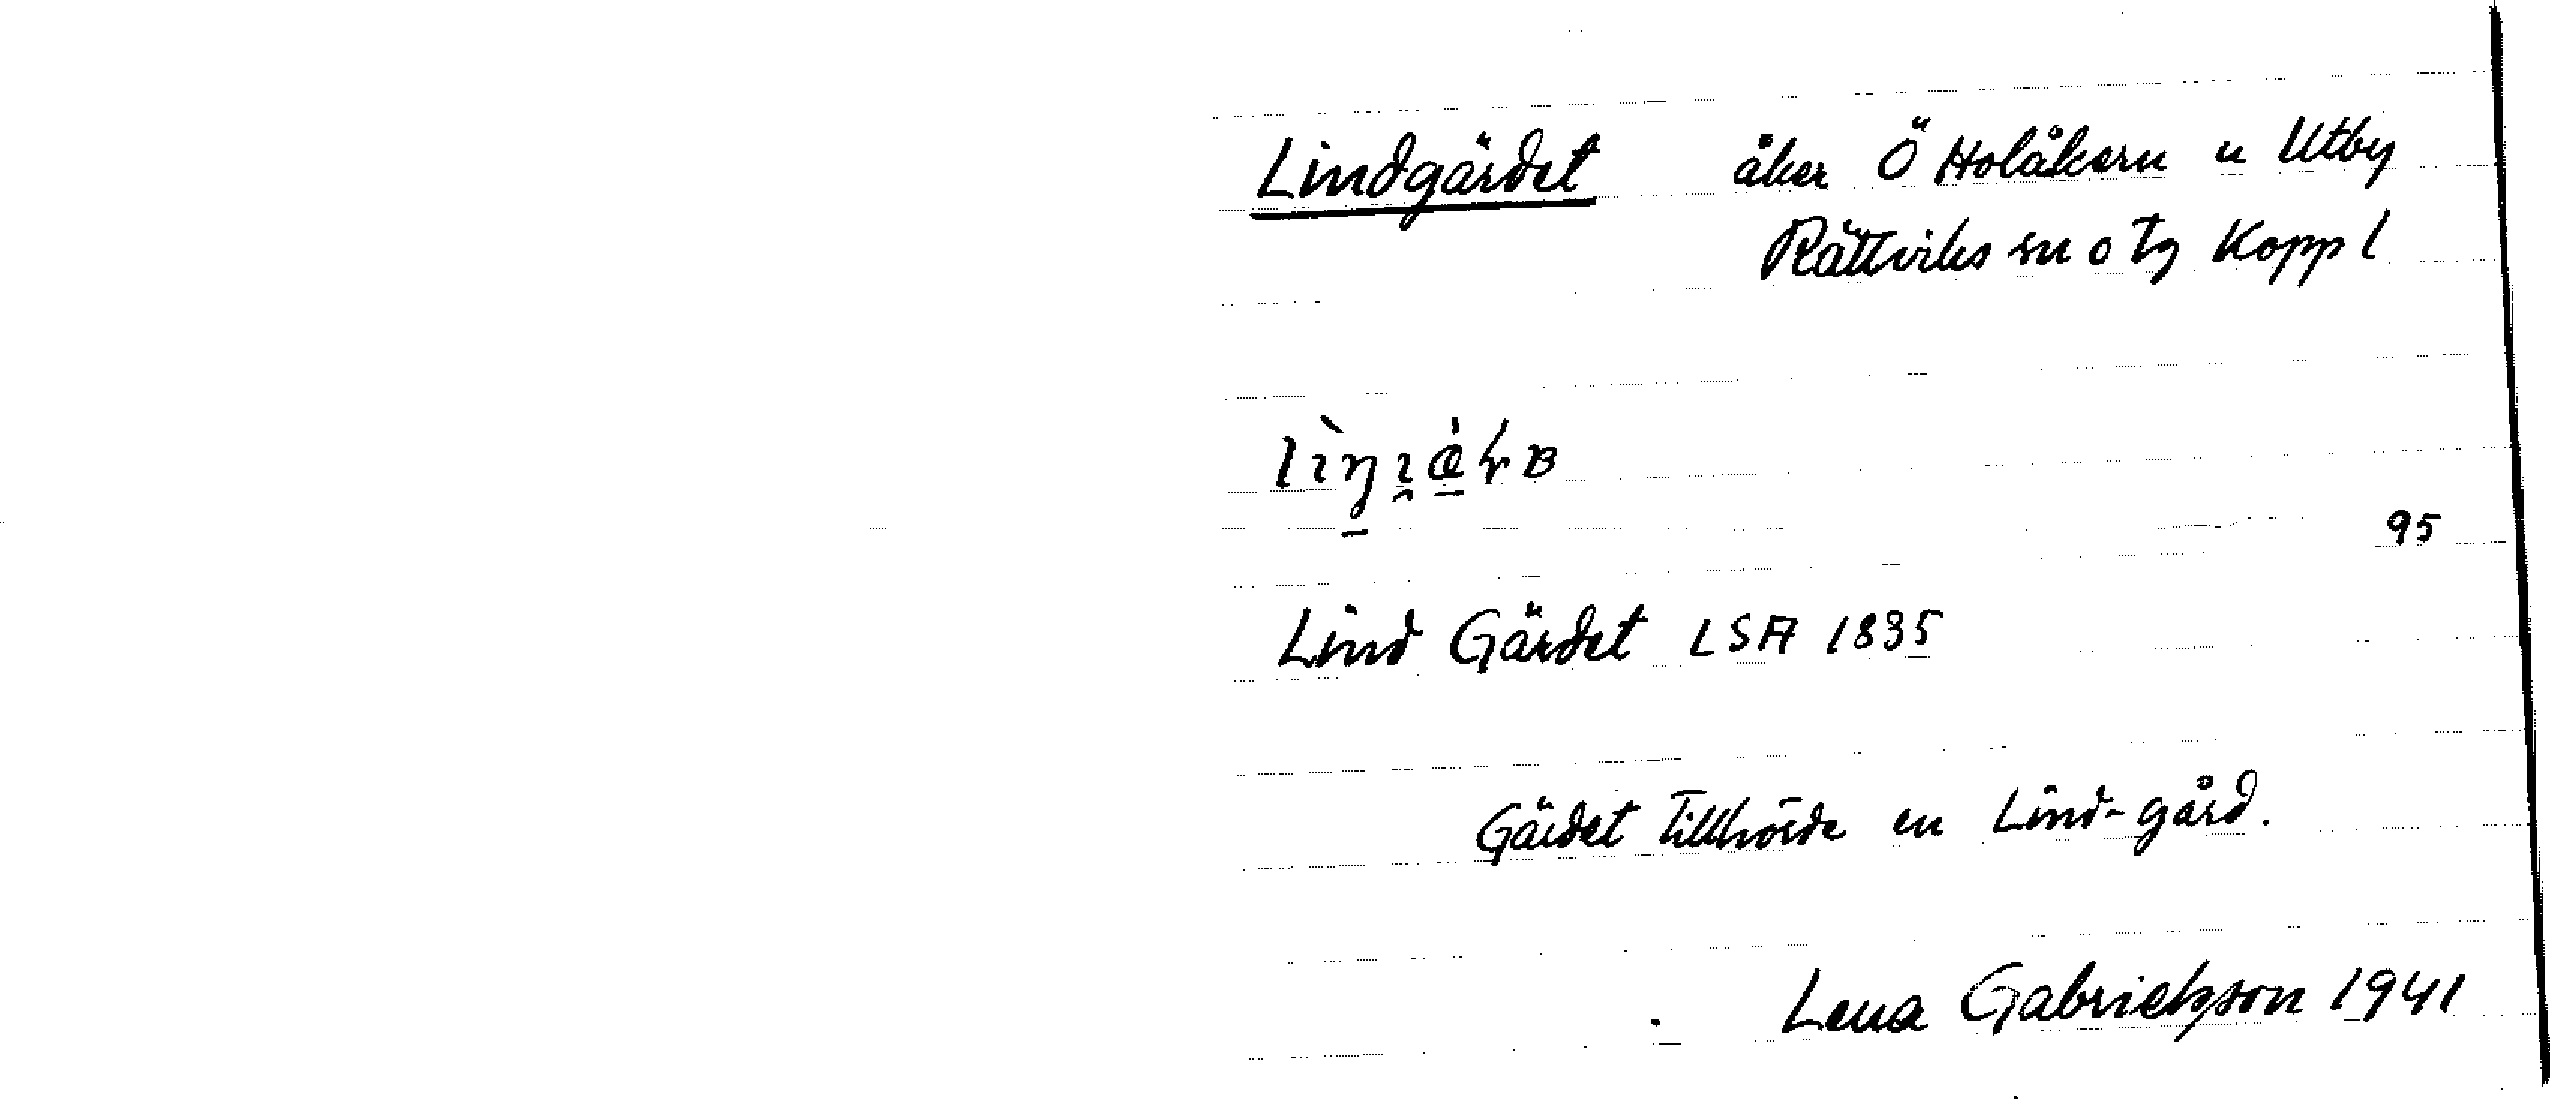 Lindgärdet åker Ö Holåkern u Utby
Rättviks sn o tg Kopp l
95
Lind Gärdet LSA 1835
Gärdet tillhörde en Lind-gård.
Lena Gabrielsson 1941